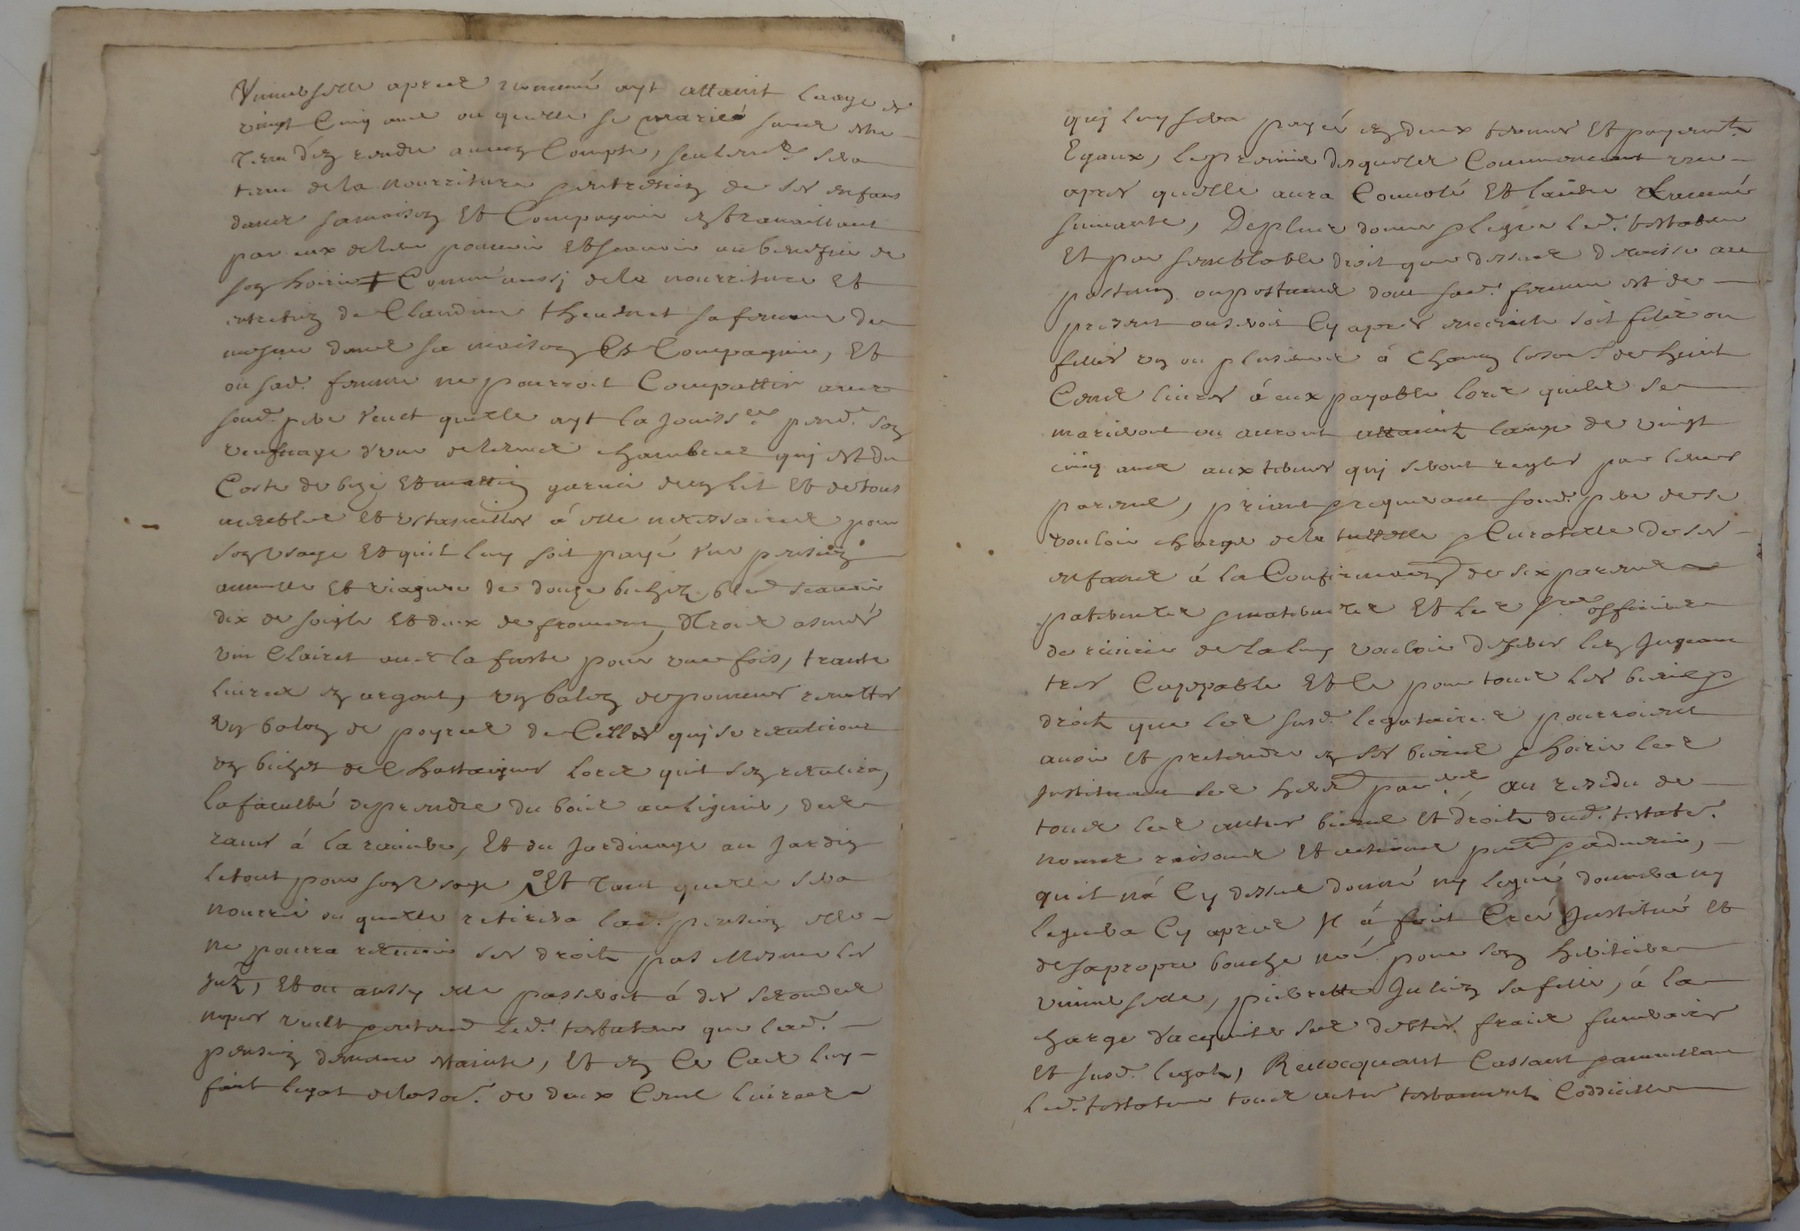 Universelle apres nommé ayt attaint laage de
vingt Cinq ans ou quelle se marie sans estre
tenu dez rendre aucung Compte, seulement sera
tenu de la nourriture & entretien de ses enfans
dans sa maison Et Compagnie en travaillant
par eux de leur pouvoir Et scavoir au benefice de
son hoirie Comm'aussi de la nourriture Et
entretien de Claudine thevenet sa femme de
mesme dans sa maison Et Compagnie, Et
ou sad. femme ne pourroit Compattir avec
soud. pere veut quelle ayt la jouiss.ce pend.t son
veufvage d'une de leurs chambres quj est du
Coste de bize Et mattin garnie dun lit Et de tous
meubles Et ustancilles á elle necessaires pour
son usage Et quil luy soit payé une pension
annuelle Et viagere de douze bichetz bled scavoir
dix de seigle Et deux de froment, Trois asnées
vin Clairet avec la fuste pour une fois, trante
livres en argent, un balon de pommes renettes
un balon de poyres de Celles quj se recultiront
un bichet de Chastaignes lors quil sen recultira,
la faculté de prendre du bois au lignier, des
raves á la raviere, Et du jardinage au jardin
le tout pour son usage, Et Tant quelle sera
nourrie ou quelle retirera lad. pension elle
ne pourra retenir ses droits pas Mesme les
Et ou aussy elle passeroit á des secondes
nopces veult & entend led. testateur que lad.
pension demeure estainte, Et en Ce Cas luy
fait legat de la so.e de deux Cens livres
quj luy sera payée en deux termes Et payements
Egaux, le premier desquels Commencant une
apres quelle aura Convolé Et lautre Lannée
suivante, Deplus donne & legue led. testateur
Et par semblable droit que dessus delaisse au
posthume ou posthumes dont sad. femme est de
present ou seroit Cy apres enceinte soit filz ou
filles un ou plusieurs á Chacun la so.e de huit
Cens livres á eux payable lors quils se
marieront ou auront attaint laage de vingt
cinq ans aux termes quj seront reglés par leurs
parens, priant & requerant soud. pere de se
vouloir charger de la tutelle & Curatelle de ses
enfans á la Confirmaon de six parens
paternels & maternels Et les officiers
de justice de la luy vouloir defferer len jugeant
tres Cappable Et Ce pour tous les biens &
droits que les susd. legataires pourroient
avoir Et pretendre en ses biens & hoirie les
instituant ses her.s par.ers, Au residu de
tous les autres biens Et droits dud. testate.r
noms raisons Et actions p.nts & advenir,
quil ná Cy dessus donné ny legué donnera ny
leguera Cy apres Il á fait Créé Institué Et
de sa propre bouche no.é pour son heritiere
universelle, pierrette Julien sa fille, á la
charge d'acquiter ses debtes frais funeraires
Et susd. legats, Revocquant Cassant & annullant
led. testateur tous autres testaments Coddicilles